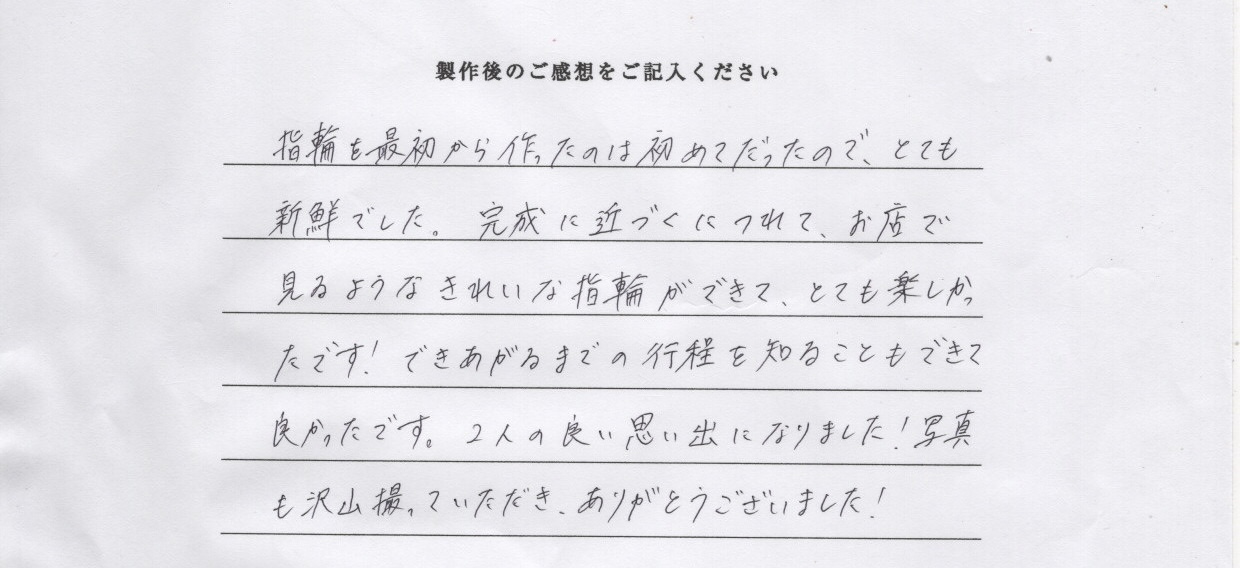 製作後のご感想をご記入ください
指輪を最初から作ったのは初めてだったので、とても
新鮮でした。完成に近づくにつれて、お店で
見るようなきれいな指輪ができて、とても楽しかっ
たです！できあがるまでの行程を知ることもできて
良かったです。2人の良い思い出になりました！写真
も沢山撮っていただき、ありがとうございました！